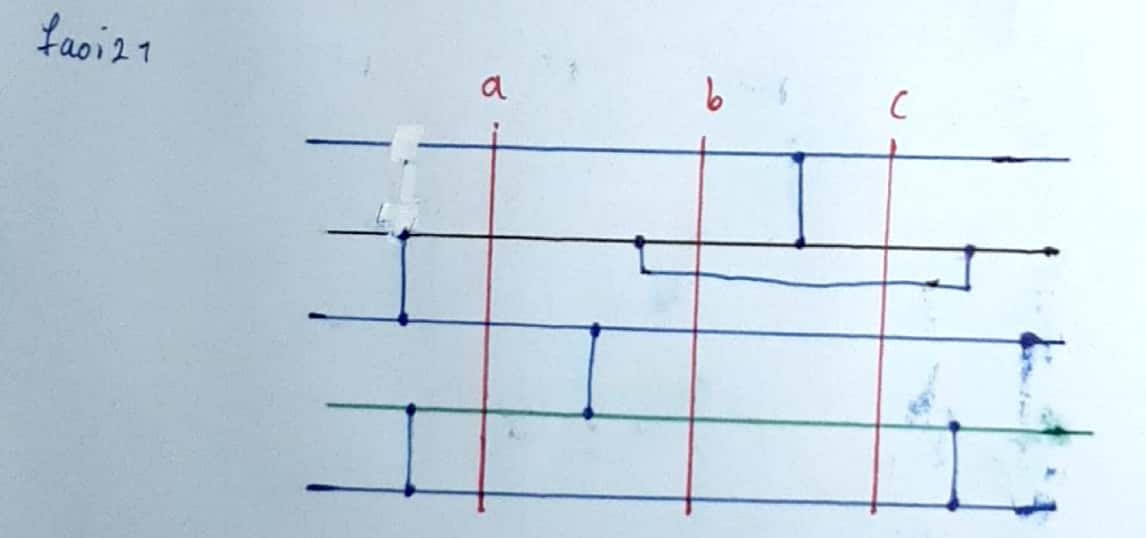 faoi21
a b c